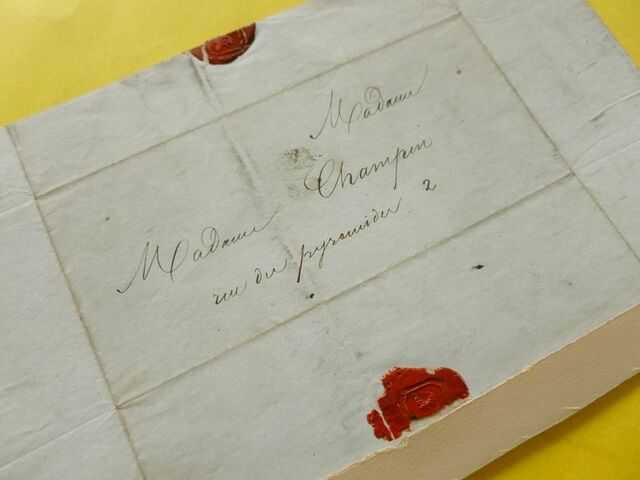 Madame
Madame Champin
rue des pyramides 2